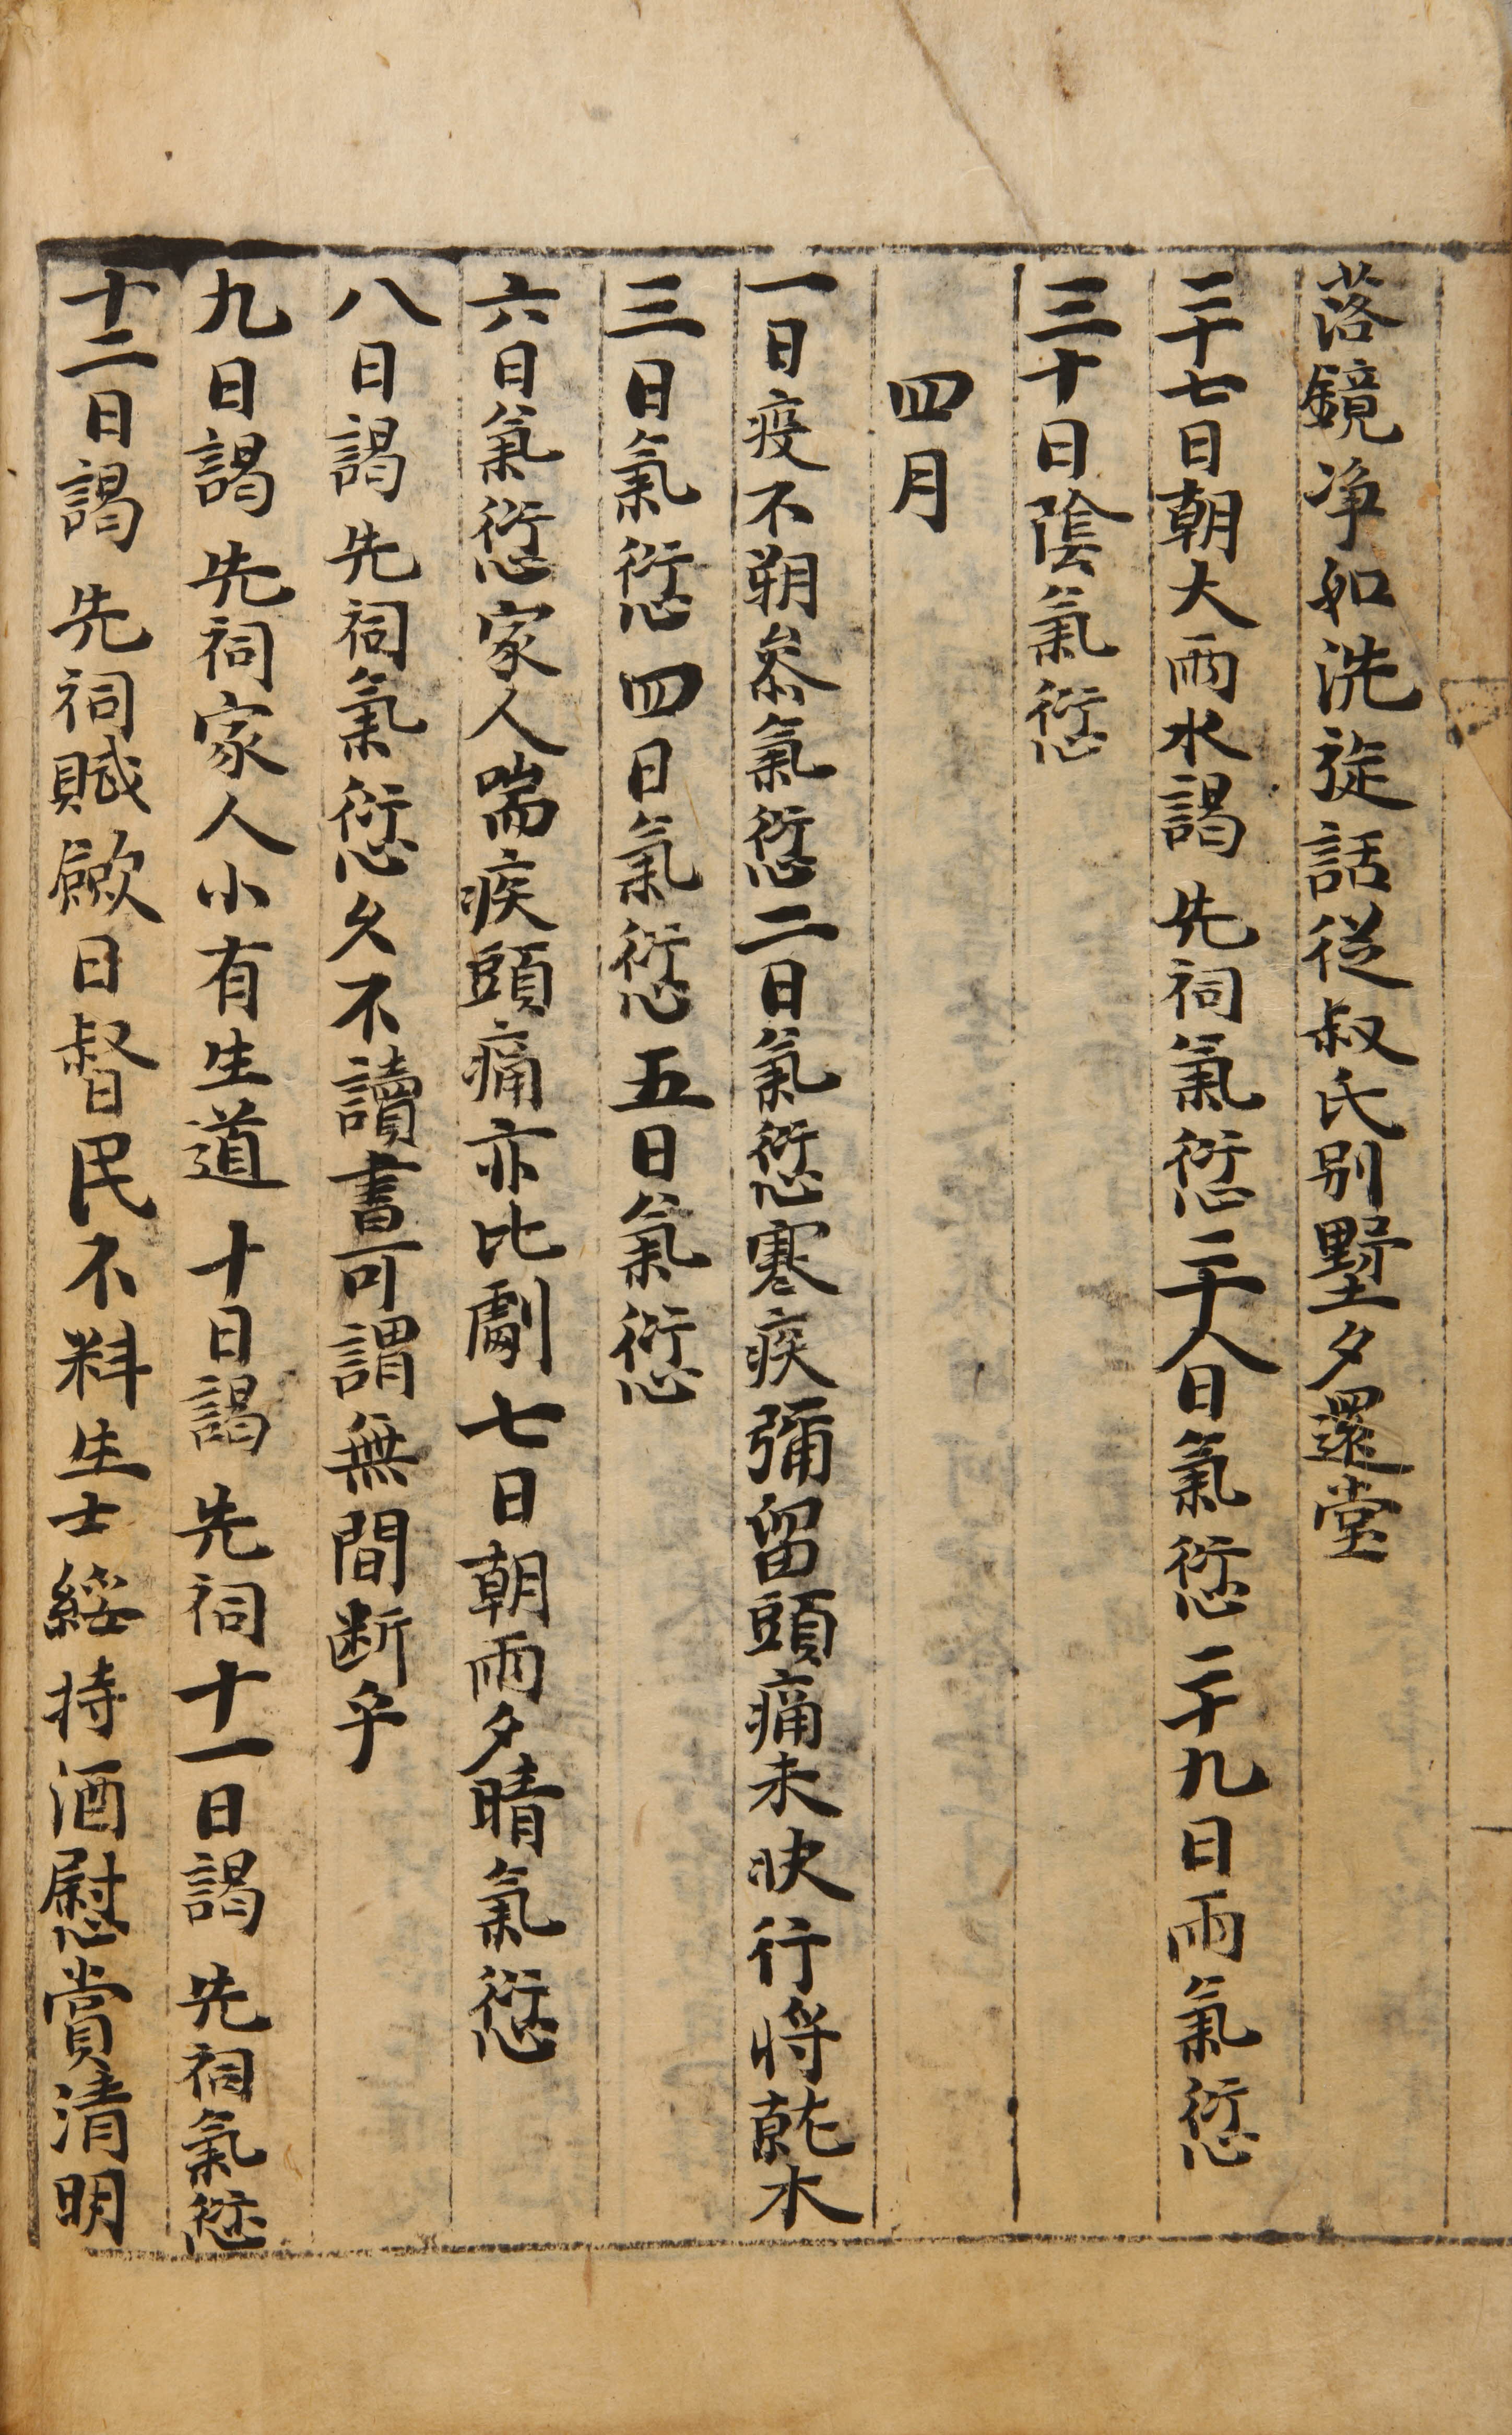 落鏡净如洗旋話從叔氏別墅夕還堂
二十七日朝大雨水謁先祠氣愆二十八日氣愆二十九日雨氣愆
三十日陰氣愆
四月
一日疫不朔叅氣愆二日氣愆寒疾彌留頭痛未快行將乾水
三日氣愆四日氣愆五日氣愆
六日氣愆家人喘疾頭痛亦比劇七日朝雨夕晴氣愆
八日謁先祠氣愆久不讀書可謂無間断乎
九日謁先祠家人小有生道十日謁先祠十一日謁先祠氣愆
十二日謁先祠賦歟日督民不料生士綏持酒慰賞清明